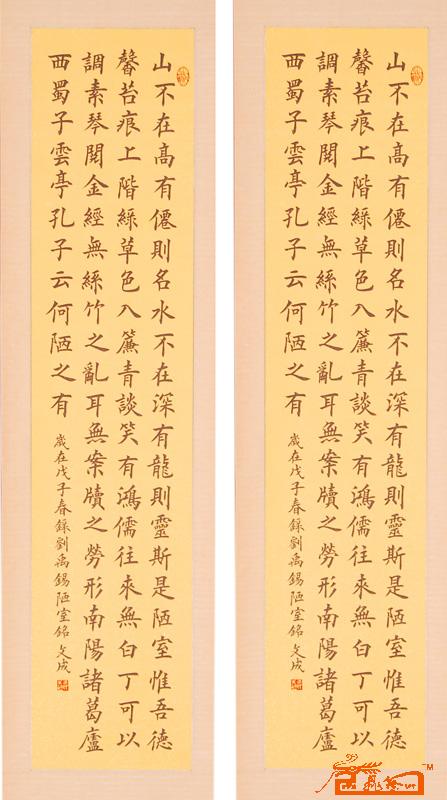 山不在高有僊則名水不在深有龍則靈斯是陋室惟吾德
馨苔痕上階綠草色入簾青談笑有鴻儒往來無白丁可以
調素琴閱金經無絲竹之亂耳無案牘之勞形南陽諸葛廬
西蜀子雲亭孔子云何陋之有
歲在戊子春錄劉禹錫陋室銘 文成
山不在高有僊則名水不在深有龍則靈斯是陋室惟吾德
馨苔痕上階綠草色入簾青談笑有鴻儒往來無白丁可以
調素琴閱金經無絲竹之亂耳無案牘之勞形南陽諸葛廬
西蜀子雲亭孔子云何陋之有
歲在戊子春錄劉禹錫陋室銘 文成
TM